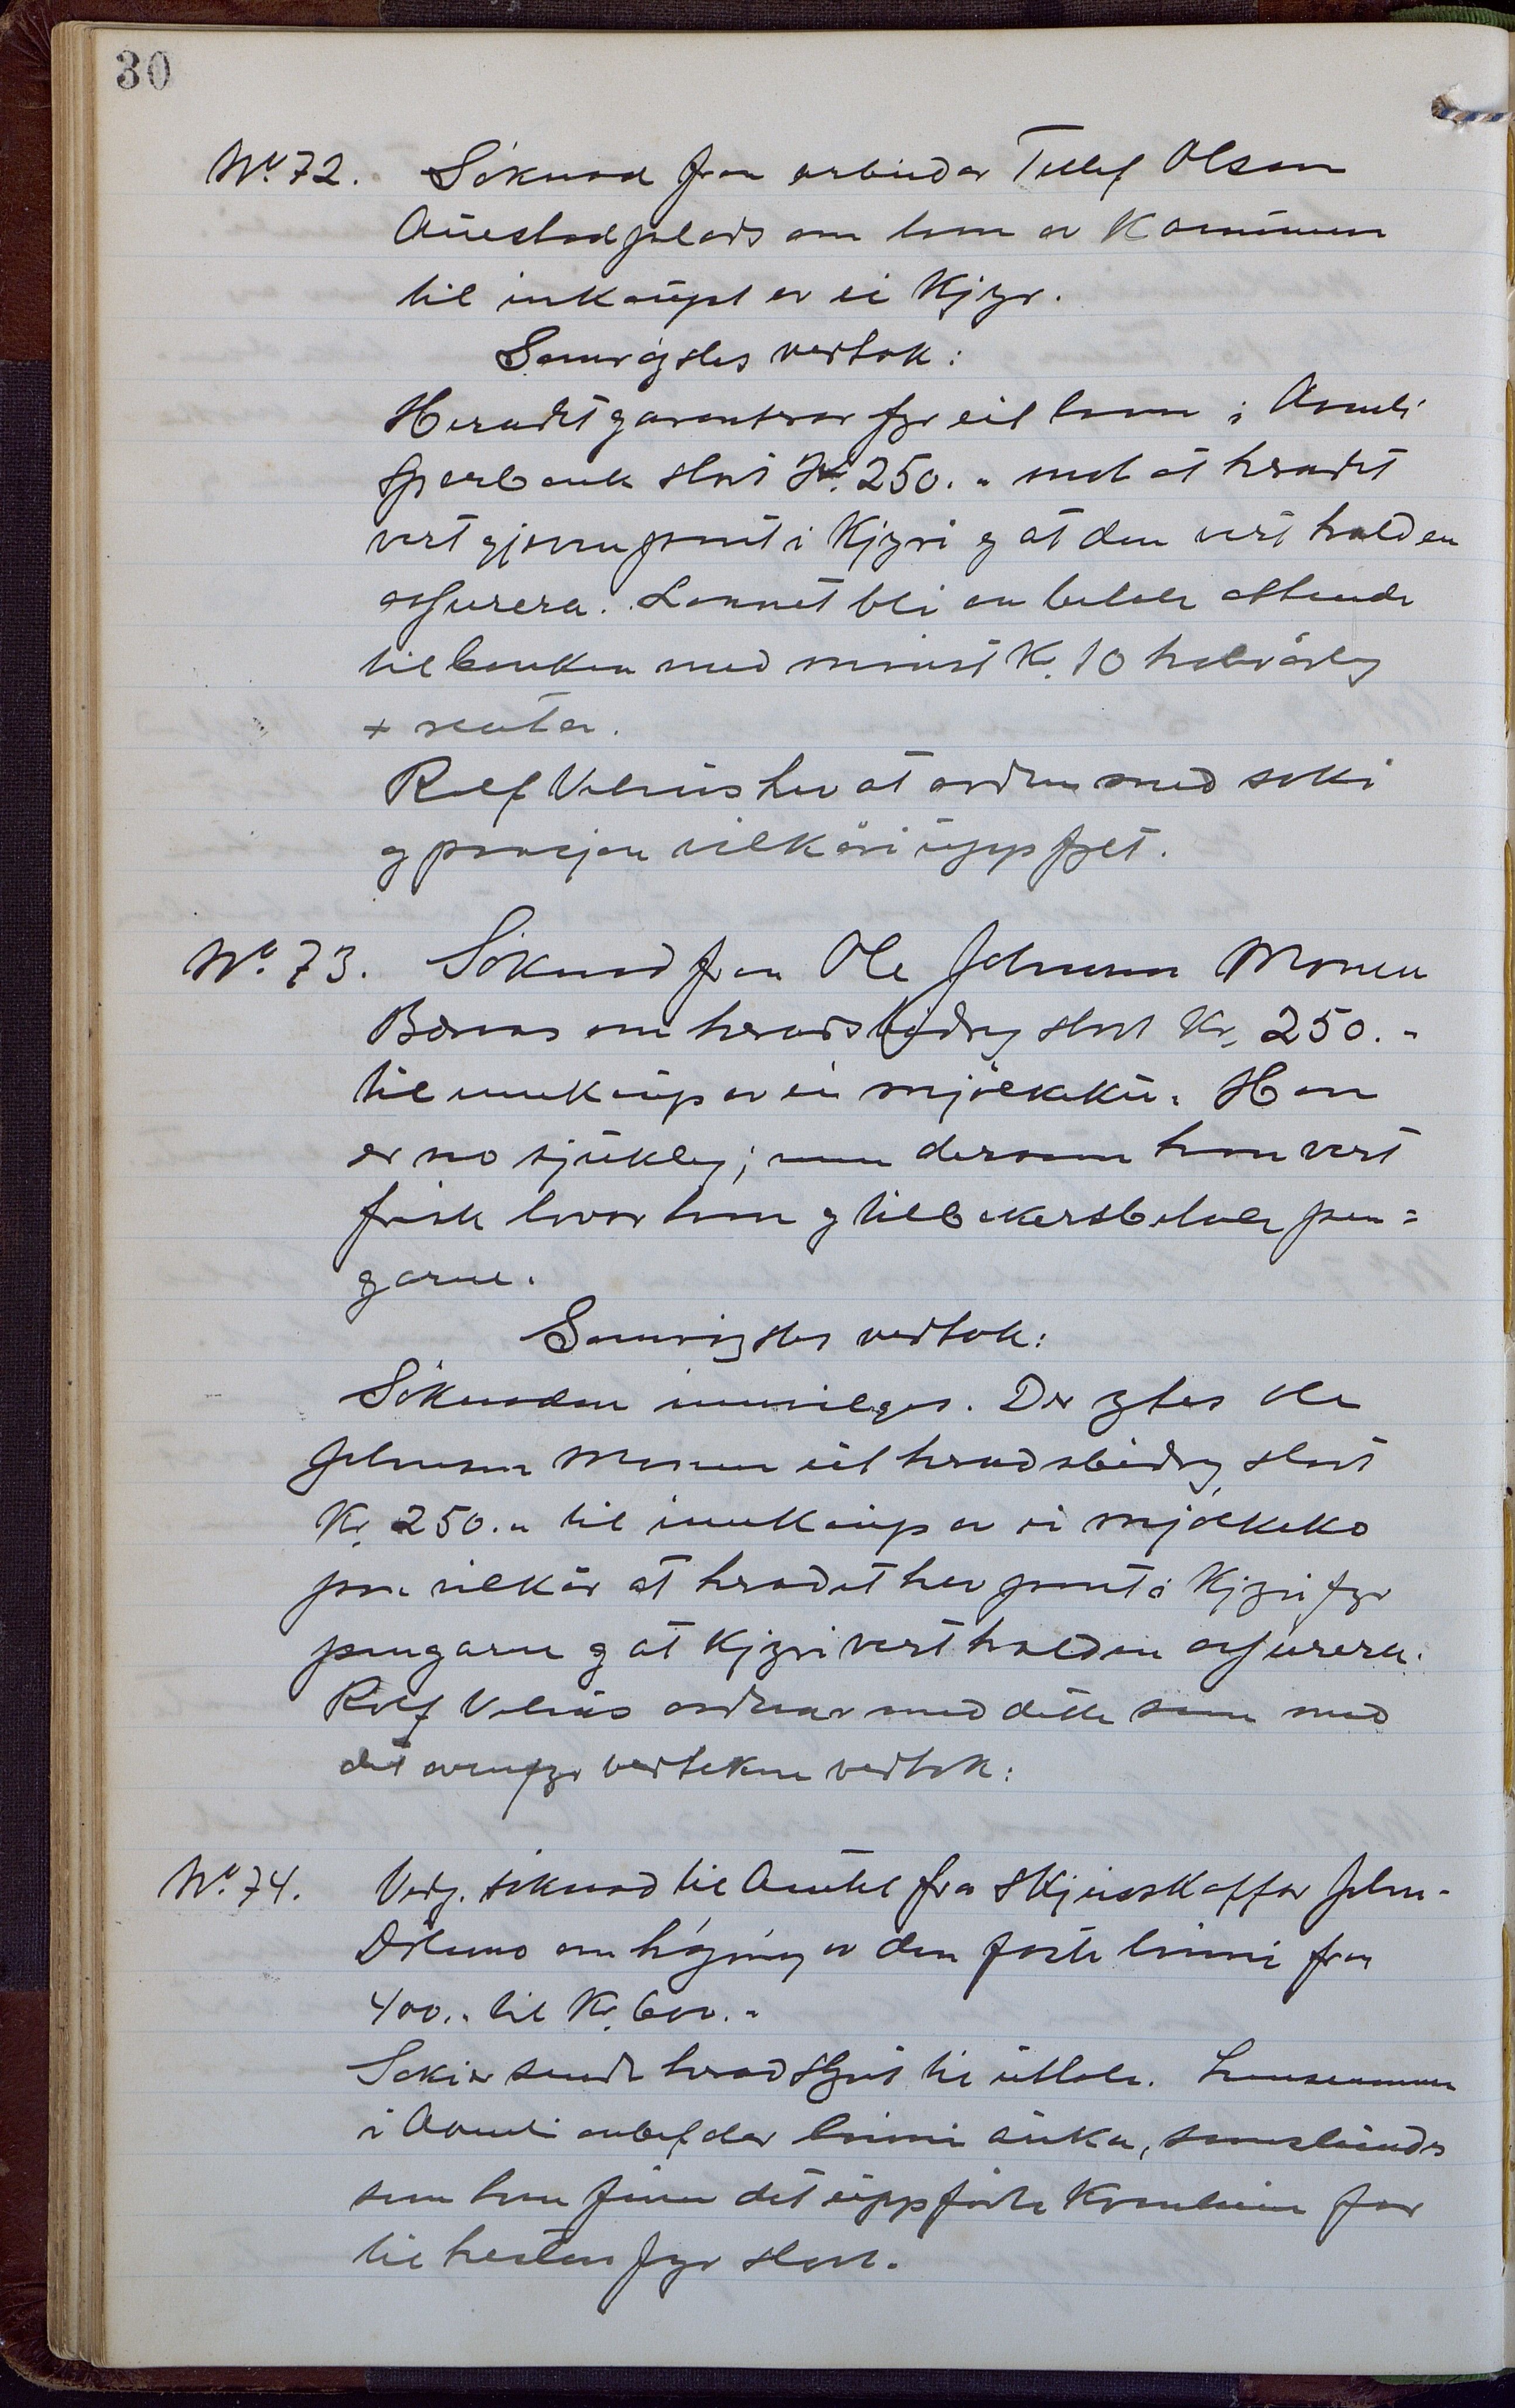 30
No. 72. Söknad fraa arbeidar Tellef Olson
Auestadplads om laan av Kommunen
til innkaupt av ei Kjyr.
Samröystes vedtak:
Heradet garanterar fyr eit laan i Aamli
Sparebank stort Kr. 250.- mot at heradet
vert gjeven pant i Kjyri og at den vert halden
assurera. Laanet bli aa betale attende
til banken med minst Kr. 10 halvaarleg
+ renter.
Rolf Vehus hev at ordna med saki
og paasjaa vilkaari uppfylt.
No. 73. Söknad fraa Ole Johnson Monen
om heradsbidrag stort Kr. 250.-
til innkaup av ei mjölkeku. Han
er no sjukleg; men dersom han vert
frisk lovar han og tilbakersbetale pen=
garne.
Samröystes vedtak:
Söknaden innvilges. Der ytes Ole
Johnson Monen eit heradsbidrag stort
Kr. 250.- til innkaup av ei mjölkeko
paa vilkår at heradet hev pant i Kjyri fyr
pengarne og at Kjyri vert halden assurera.
Rolf Vehus ordnar med dette som med
det ovenfyr vedtekne vedtak:
No. 74. Vedg. söknad til Amtet fra Skjusskaffar John
om höging av den faste lönni fraa
400.- til Kr. 600.-
Saki er sendt heradstyret til uttale. Lensmannen
i Aamli anbefalar lönni auka, samstundes
som han finn det uppförte Kravhöve for
til hesten fyr stort.